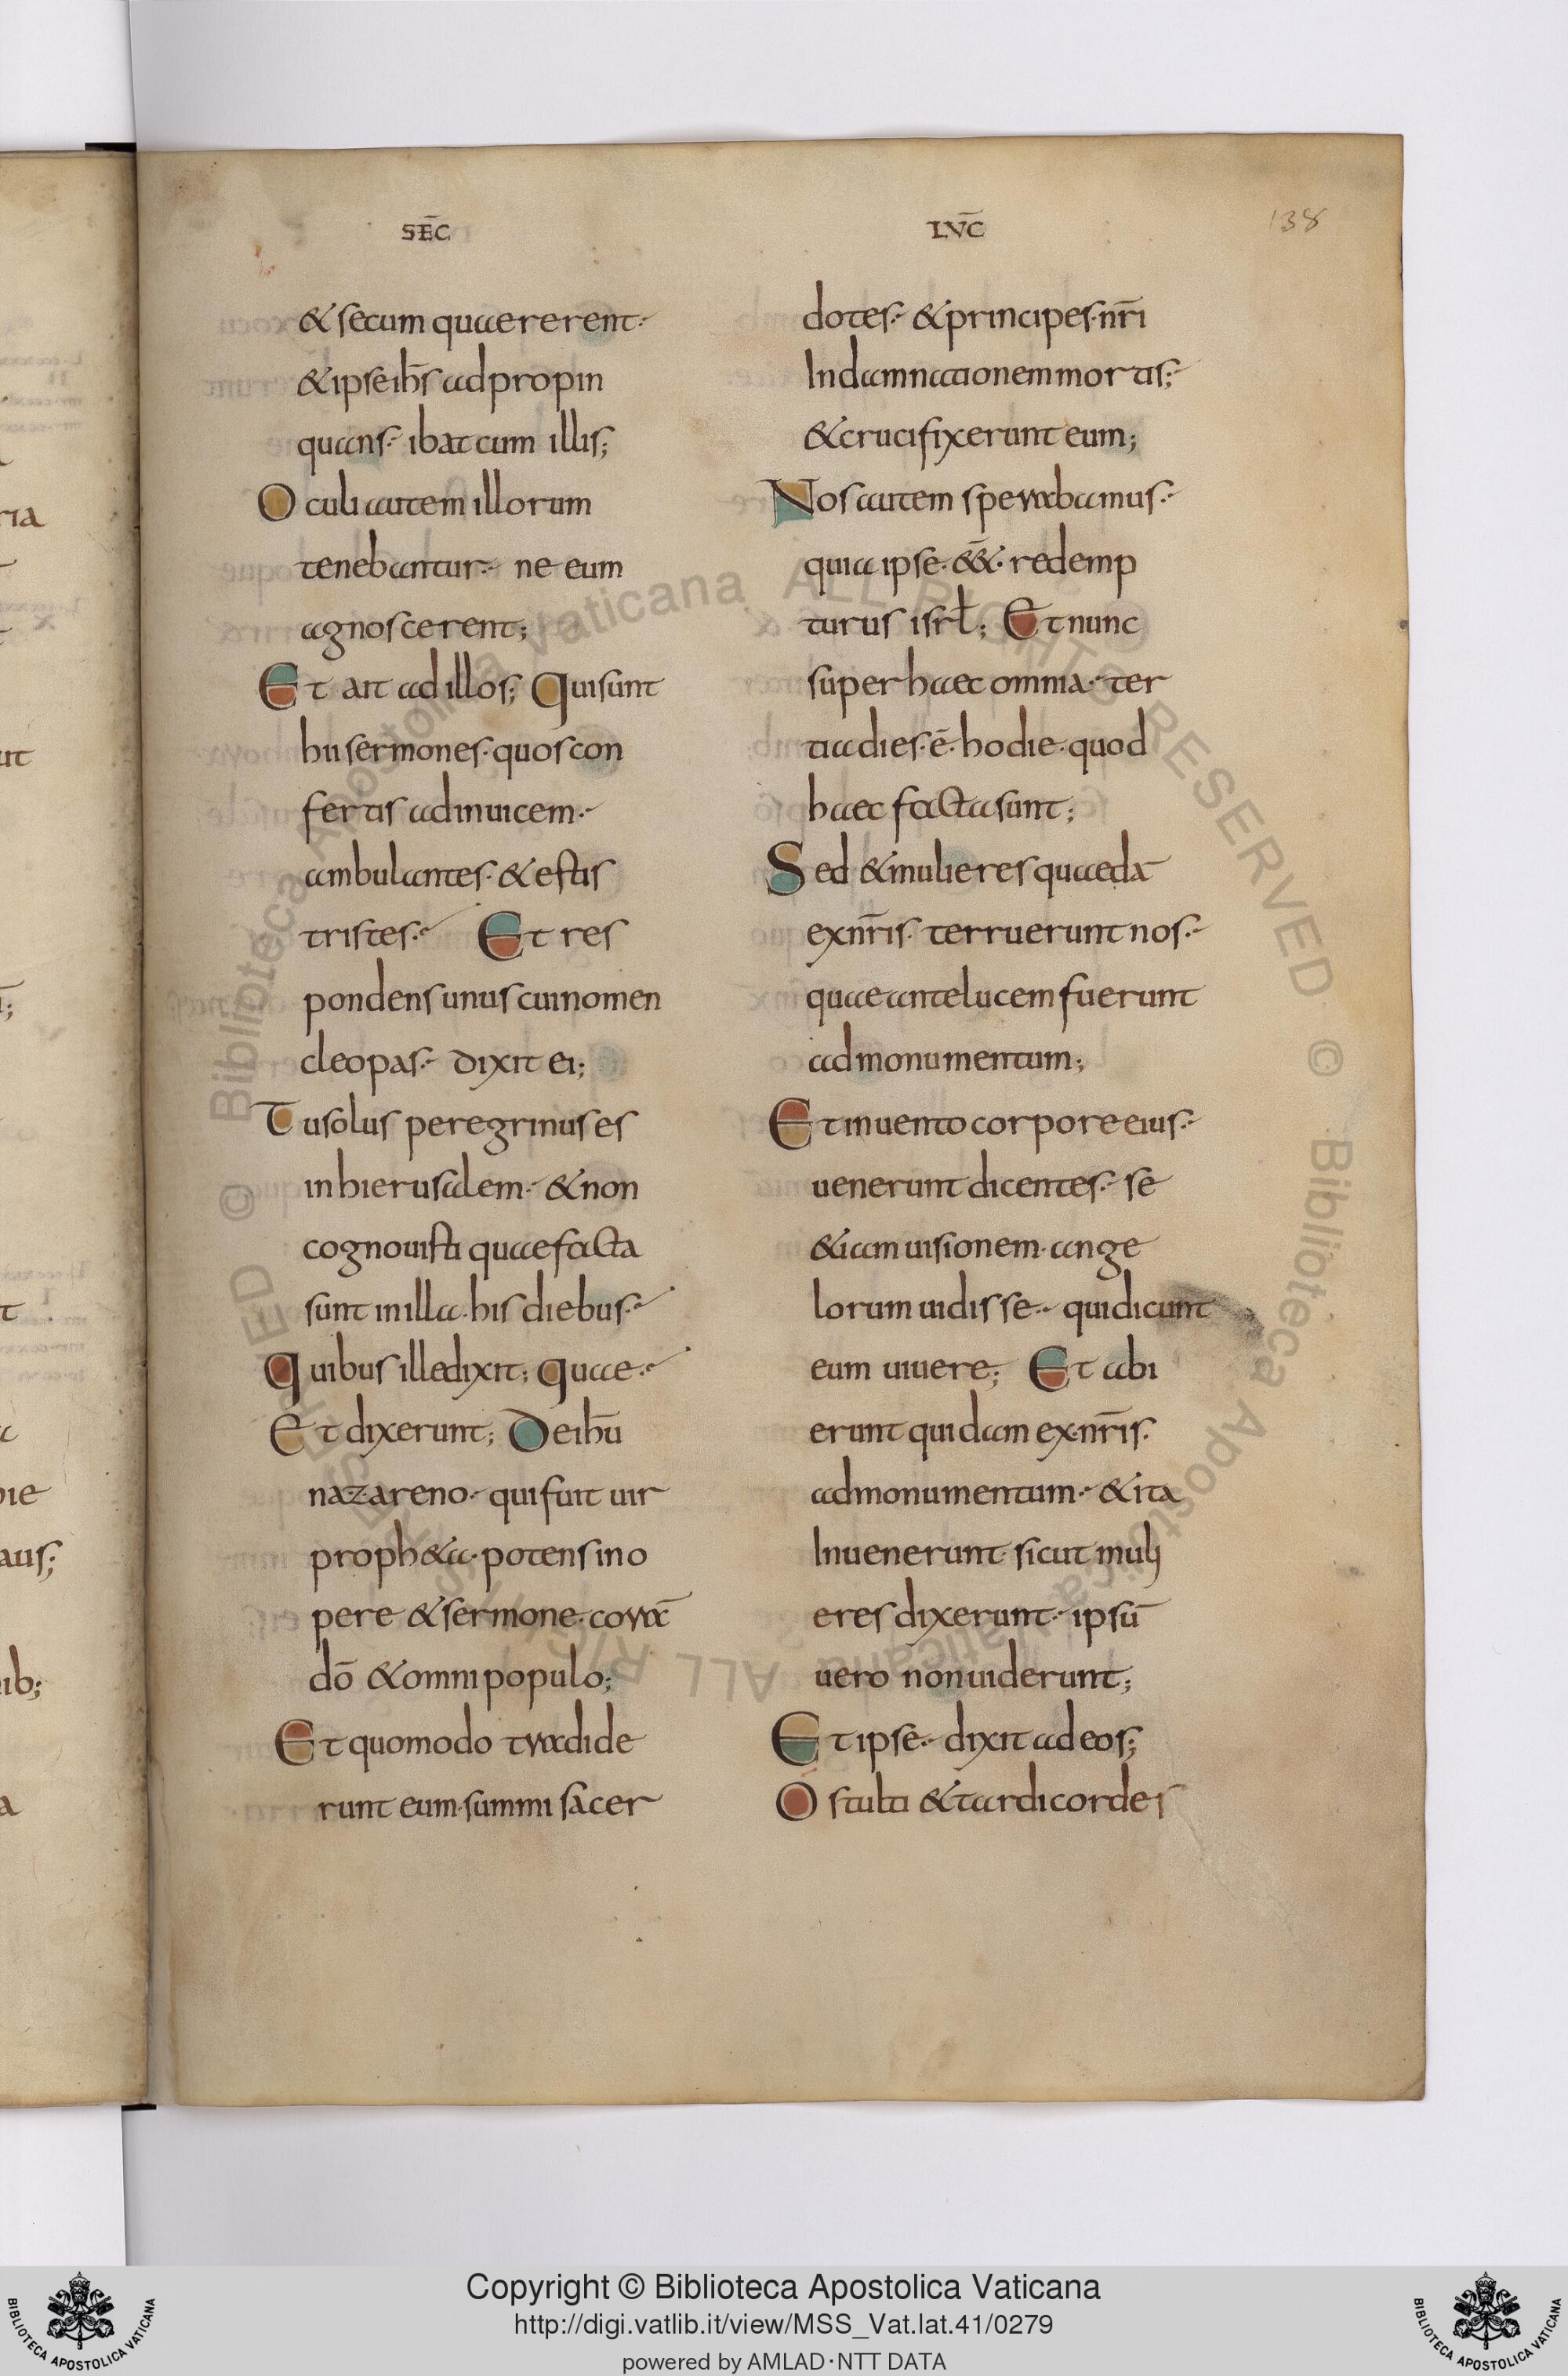 SEC̄
& secum quaererent·
& ipse ih̄s adpropin
quans· ibat cum illis;
Oculi autem illorum
tenebantur· ne eum
agnoscerent;
Et ait ad illos; Qui sunt
hii sermones· quos con
fertis adinuicem·
ambulantes· & estis
tristes· Et res
pondens unus cui nomen
cleopas· dixit ei;
Tu solus peregrinus es
in hierusalem· & non
cognouisti quae facta
sunt in illa· his diebus·
Quibus ille dixit; Quae·
Et dixerunt; De ihū
nazareno· qui fuit uir
proph&a· potens in o
pere & sermone· corā
dō & omni populo;
Et quomodo tradide
runt eum· summi sacer
LVC̄
138
dotes· & principes· nr̄i
In damnationem mortis;
& crucifixerunt eum;
Nos autem sperabamus·
quia ipse· ēē&· redemp
turus isrl̄; Et nunc
super haec omnia· ter
tia dies· ē· hodie· quod
haec facta sunt;
Sed & mulieres quaedā
ex nr̄is· terruerunt nos·
quae ante lucem fuerunt
ad monumentum;
Et inuento corpore eius·
uenerunt dicentes· se
&iam uisionem· ange
lorum uidisse· qui dicunt
eum uiuere; Et abi
erunt quidam ex· nr̄is·
ad monumentum· & ita
Inuenerunt· sicut muli
eres dixerunt· ipsū
uero non uiderunt;
Et ipse· dixit ad eos;
O stulti & tardi cordes
Copyright © Biblioteca Apostolica Vaticana
http://digi.vatlib.it/view/MSS_Vat.lat.41/0279
powered by AMLAD·NTT DATA
BIBLIOTECA APOSTOLICA VATICANA
BIBLIOTECA APOSTOLICA VATICANA
© Biblioteca Apostolica Vaticana ALL RIGHTS RESERVED © Biblioteca Apostolica Vaticana ALL RIGHTS RESERVED